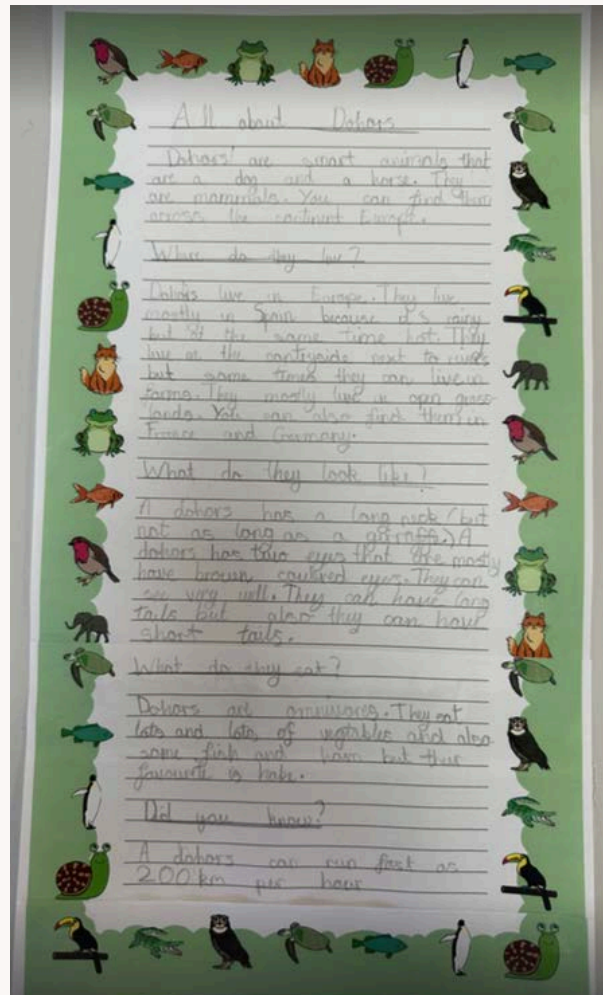 All about Dohors
Dohors' are smart animals that
are a dog and a horse. They
are mammals. You can find them
across the continent Europe.
Where do they live?
Dohors live in Europe. They live
mostly in Spain because it's rainy
but at the same time hot. They
lay on the cantryside next to rivers
but some times they can live in
farms. They mostly live in open grass
lands. You can also find them in
France and Germany.
What do they look like?
A dohors has a long nick (but
not as long as a giraffe.) A
dohors has two eyes that are mostly
have brown coulired eyes. They can
see viry well. They can have long
tails but also they can have
short tails.
What do they eat?
Dohors are omnivores. They eat
lots and lots of vegtables and also
some fish and but their
favourite is hake.
Did you know?
A dohors can run fast as
200 km per hour